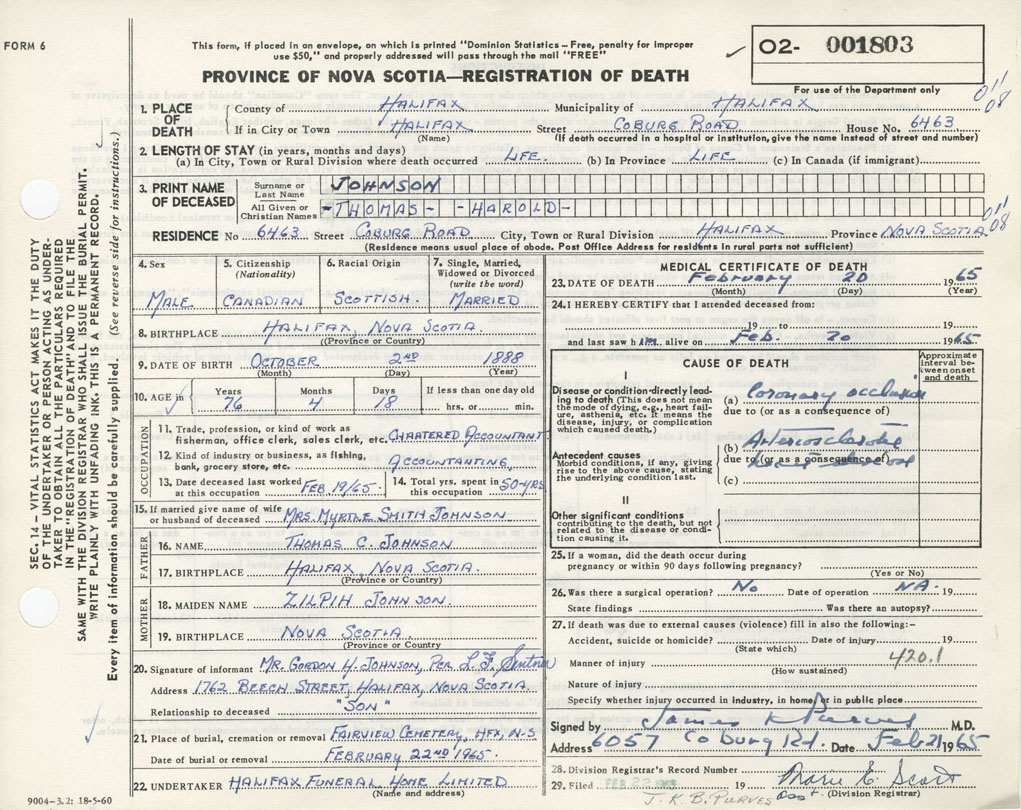 FORM 6
This form, if placed in an envelope, on which is printed "Dominion Statistics – Free, penalty for improper
use $50," and properly addressed will pass through the mail "FREE"
02- 001803
For use of the Department only
PROVINCE OF NOVA SCOTIA—REGISTRATION OF DEATH
1. PLACE OF DEATH
County of HALIFAX Municipality of HALIFAX
If in City or Town HALIFAX Street COBURG ROAD House No. 6463
(Name) (If death occurred in a hospital or institution, give the name instead of street and number)
2. LENGTH OF STAY (in years, months and days)
(a) In City, Town or Rural Division where death occurred LIFE. (b) In Province LIFE. (c) In Canada (if immigrant)
3. PRINT NAME OF DECEASED
Surname or Last Name JOHNSON
All Given or Christian Names -THOMAS- -HAROLD-
RESIDENCE No 6463 Street COBURG ROAD City, Town or Rural Division HALIFAX Province NOVA SCOTIA
(Residence means usual place of abode. Post Office Address for residents in rural parts not sufficient)
4. Sex
MALE
5. Citizenship (Nationality)
CANADIAN
6. Racial Origin
SCOTTISH.
7. Single, Married, Widowed or Divorced (write the word)
MARRIED
8. BIRTHPLACE HALIFAX, NOVA SCOTIA
(Province or Country)
9. DATE OF BIRTH OCTOBER 2ND 1888
(Month) (Day) (Year)
10. AGE in Years Months Days If less than one day old
76 4 18 hrs. or min.
OCCUPATION
11. Trade, profession, or kind of work as
fisherman, office clerk, sales clerk, etc. CHARTERED ACCOUNTANT
12. Kind of industry or business, as fishing,
bank, grocery store, etc. ACCOUNTANTING
13. Date deceased last worked at this occupation FEB. 19/65. 14. Total yrs. spent in this occupation 50-YRS
15. If married give name of wife or husband of deceased MRS. MYRTLE SMITH JOHNSON
FATHER
16. NAME THOMAS C. JOHNSON
17. BIRTHPLACE HALIFAX, NOVA SCOTIA.
(Province or Country)
MOTHER
18. MAIDEN NAME ZILPIH JOHNSON.
19. BIRTHPLACE NOVA SCOTIA.
(Province or Country)
20. Signature of informant MR. GORDON H. JOHNSON, PER L.F.
Address 1762 BEECH STREET, HALIFAX, NOVA SCOTIA.
Relationship to deceased "SON"
21. Place of burial, cremation or removal FAIRVIEW CEMETERY, HFX, N-S
Date of burial or removal FEBRUARY 22ND 1965.
22. UNDERTAKER HALIFAX FUNERAL HOME LIMITED
(Name and address)
9004-3.2: 18-5-60
MEDICAL CERTIFICATE OF DEATH
23. DATE OF DEATH February 20 1965
(Month) (Day) (Year)
24. I HEREBY CERTIFY that I attended deceased from:
19 to 19
and last saw him alive on Feb. 20 1965
CAUSE OF DEATH
Approximate interval between onset and death
I
Disease or condition directly leading to death (This does not mean the mode of dying, e.g., heart failure, asthenia, etc. It means the disease, injury, or complication which caused death.)
(a) Coronary occlusion
due to (or as a consequence of)
Antecedent causes
Morbid conditions, if any, giving rise to the above cause, stating the underlying condition last.
(b) Arteriosclerotic
due to (or as a consequence of)
(c)
II
Other significant conditions
contributing to the death, but not related to the disease or condition causing it.
25. If a woman, did the death occur during
pregnancy or within 90 days following pregnancy?
(Yes or No)
26. Was there a surgical operation? No Date of operation NA. 19
State findings Was there an autopsy?
27. If death was due to external causes (violence) fill in also the following:–
Accident, suicide or homicide? Date of injury 19
(State which)
420.1
Manner of injury
(How sustained)
Nature of injury
Specify whether injury occurred in industry, in home, or in public place
Signed by James K Purves M.D.
Address 6057 Coburg Rd. Date Feb 21 1965
28. Division Registrar's Record Number
29. Filed FEB 22 19 Marie E. Scott
(Division Registrar)
J.K.B. PURVES
SEC. 14 – VITAL STATISTICS ACT MAKES IT THE DUTY
OF THE UNDERTAKER OR PERSON ACTING AS UNDER-
TAKER TO OBTAIN ALL THE PARTICULARS REQUIRED
IN THE "REGISTRATION OF DEATH" AND TO FILE THE
SAME WITH THE DIVISION REGISTRAR WHO SHALL ISSUE THE BURIAL PERMIT.
WRITE PLAINLY WITH UNFADING INK. THIS IS A PERMANENT RECORD.
Every item of information should be carefully supplied. (See reverse side for instructions.)